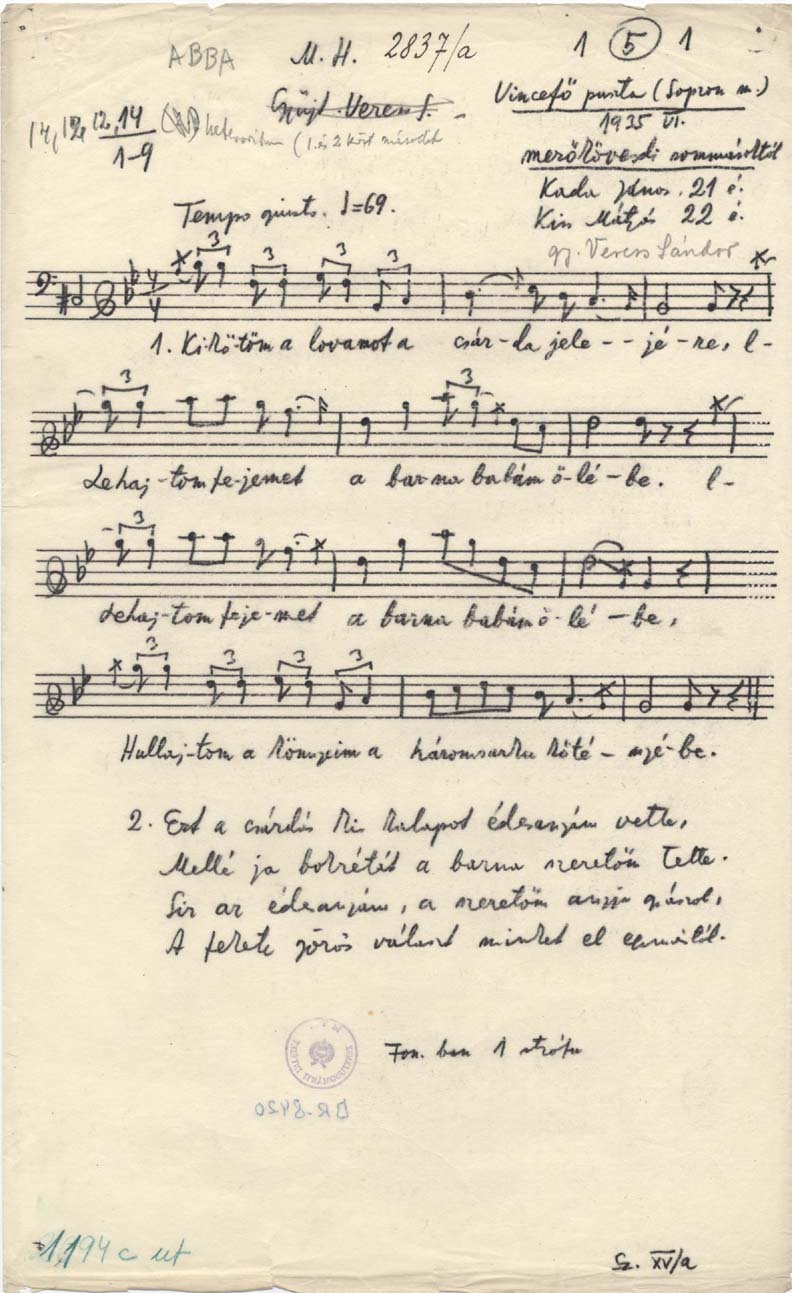 ABBA M. H. 2837/a 1 5 1
Gyűjt. Veress S.
Vincefő puszta (Sopron m.)
14, 12, 12, 14 heteroritm (1. és 2. kört második
1-9
1935 VI.
mezőkövesdi sommásoktól
Kada János. 21 é.
Kiss Mátyás 22 é.
Tempo giusto. ♩=69.
gy. Veress Sándor
1. Ki-kö-töm a lovamot a csár-da jele- - jé-re, l-
Lehaj-tom fe-jemet a bar-na babám ö-lé-be. l-
Lehaj-tom feje-met a barna babám ö-lé-be,
Hullaj-tom a könnyeim a háromsarku köté-nyé-be.
2. Ezt a csárdás kis kalapot édesanyám vette,
Mellé ja bokrétát a barna szeretőm tette.
Sír az édesanyám, a szeretőm annyi gyászol,
A fekete görös választ minket el egymástól.
Fon. ban 1 strófa
BR-8420
1,194 c ut
Sz. XV/a